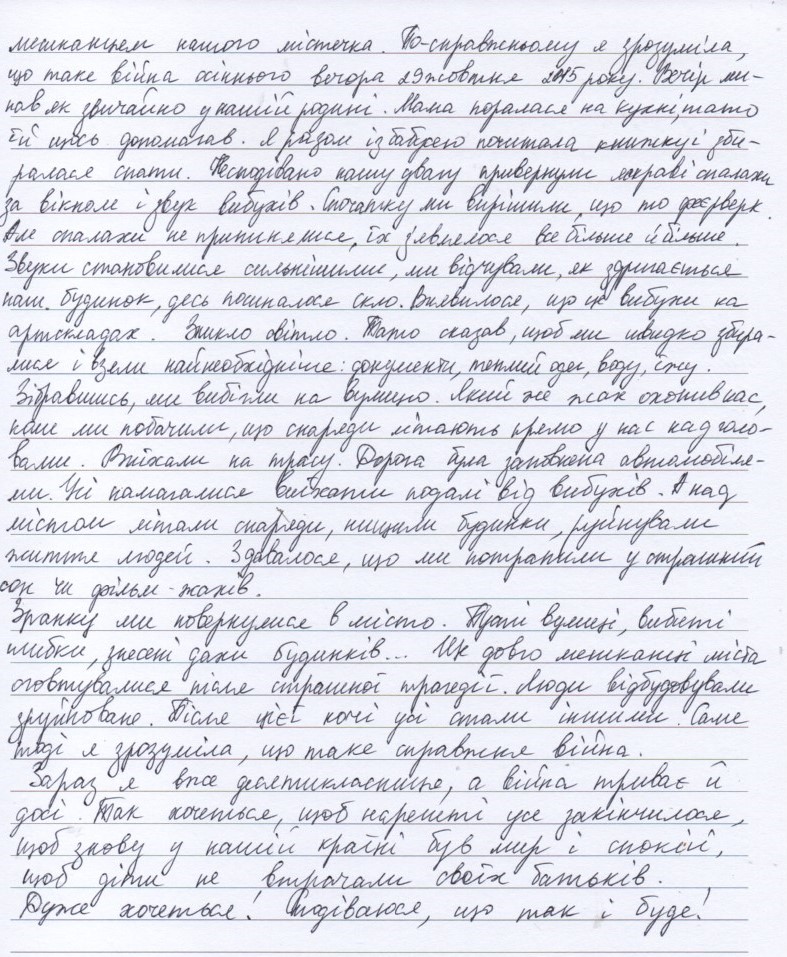 мешканцем нашого містечка. По-справжньому я зрозуміла,
що таке війна осіннього вечора 29 жовтня 2015 року. Вечір ми-
нав як звичайно у нашій родині. Мама поралася на кухні, тато
їй щось допомагав. Я разом із бабусею почитала книжку і зби-
ралася спати. Несподівано нашу увагу привернули яскраві спалахи
за вікном і звук вибухів. Спочатку ми вирішили, що то феєрверк.
Але спалахи не припинялися, їх з'являлося все більше й більше.
Звуки становилися сильнішими, ми відчували, як здригається
наш будинок, десь посипалося скло. Виявилося, що це вибухи на
артскладах. Зникло світло. Тато сказав, щоб ми швидко збира-
лися і взяли найнеобхідніше: документи, теплий одяг, воду, їжу.
Зібравшись, ми вибігли на вулицю. Який же жах охопив нас,
коли ми побачили, що снаряди літають прямо у нас над голо-
вами. Виїхали на трасу. Дорога була заповнена автомобіля-
ми. Усі намагалися виїхати подалі від вибухів. А над
містом літали снаряди, нищили будинки, руйнували
життя людей. Здавалося, що ми потрапили у страшний
сон чи фільм-жахів.
Зранку ми повернулися в місто. Пусті вулиці, вибиті
шибки, знесені дахи будинків... Ще довго мешканці міста
оговтувалися після страшної трагедії. Люди відбудовували
зруйноване. Після цієї ночі усі стали іншими. Саме
тоді я зрозуміла, що таке справжня війна.
Зараз я вже десятикласниця, а війна триває й
досі. Так хочеться, щоб нарешті усе закінчилося,
щоб знову у нашій країні був мир і спокій,
щоб діти не втрачали своїх батьків.
Дуже хочеться! Сподіваюся, що так і буде!